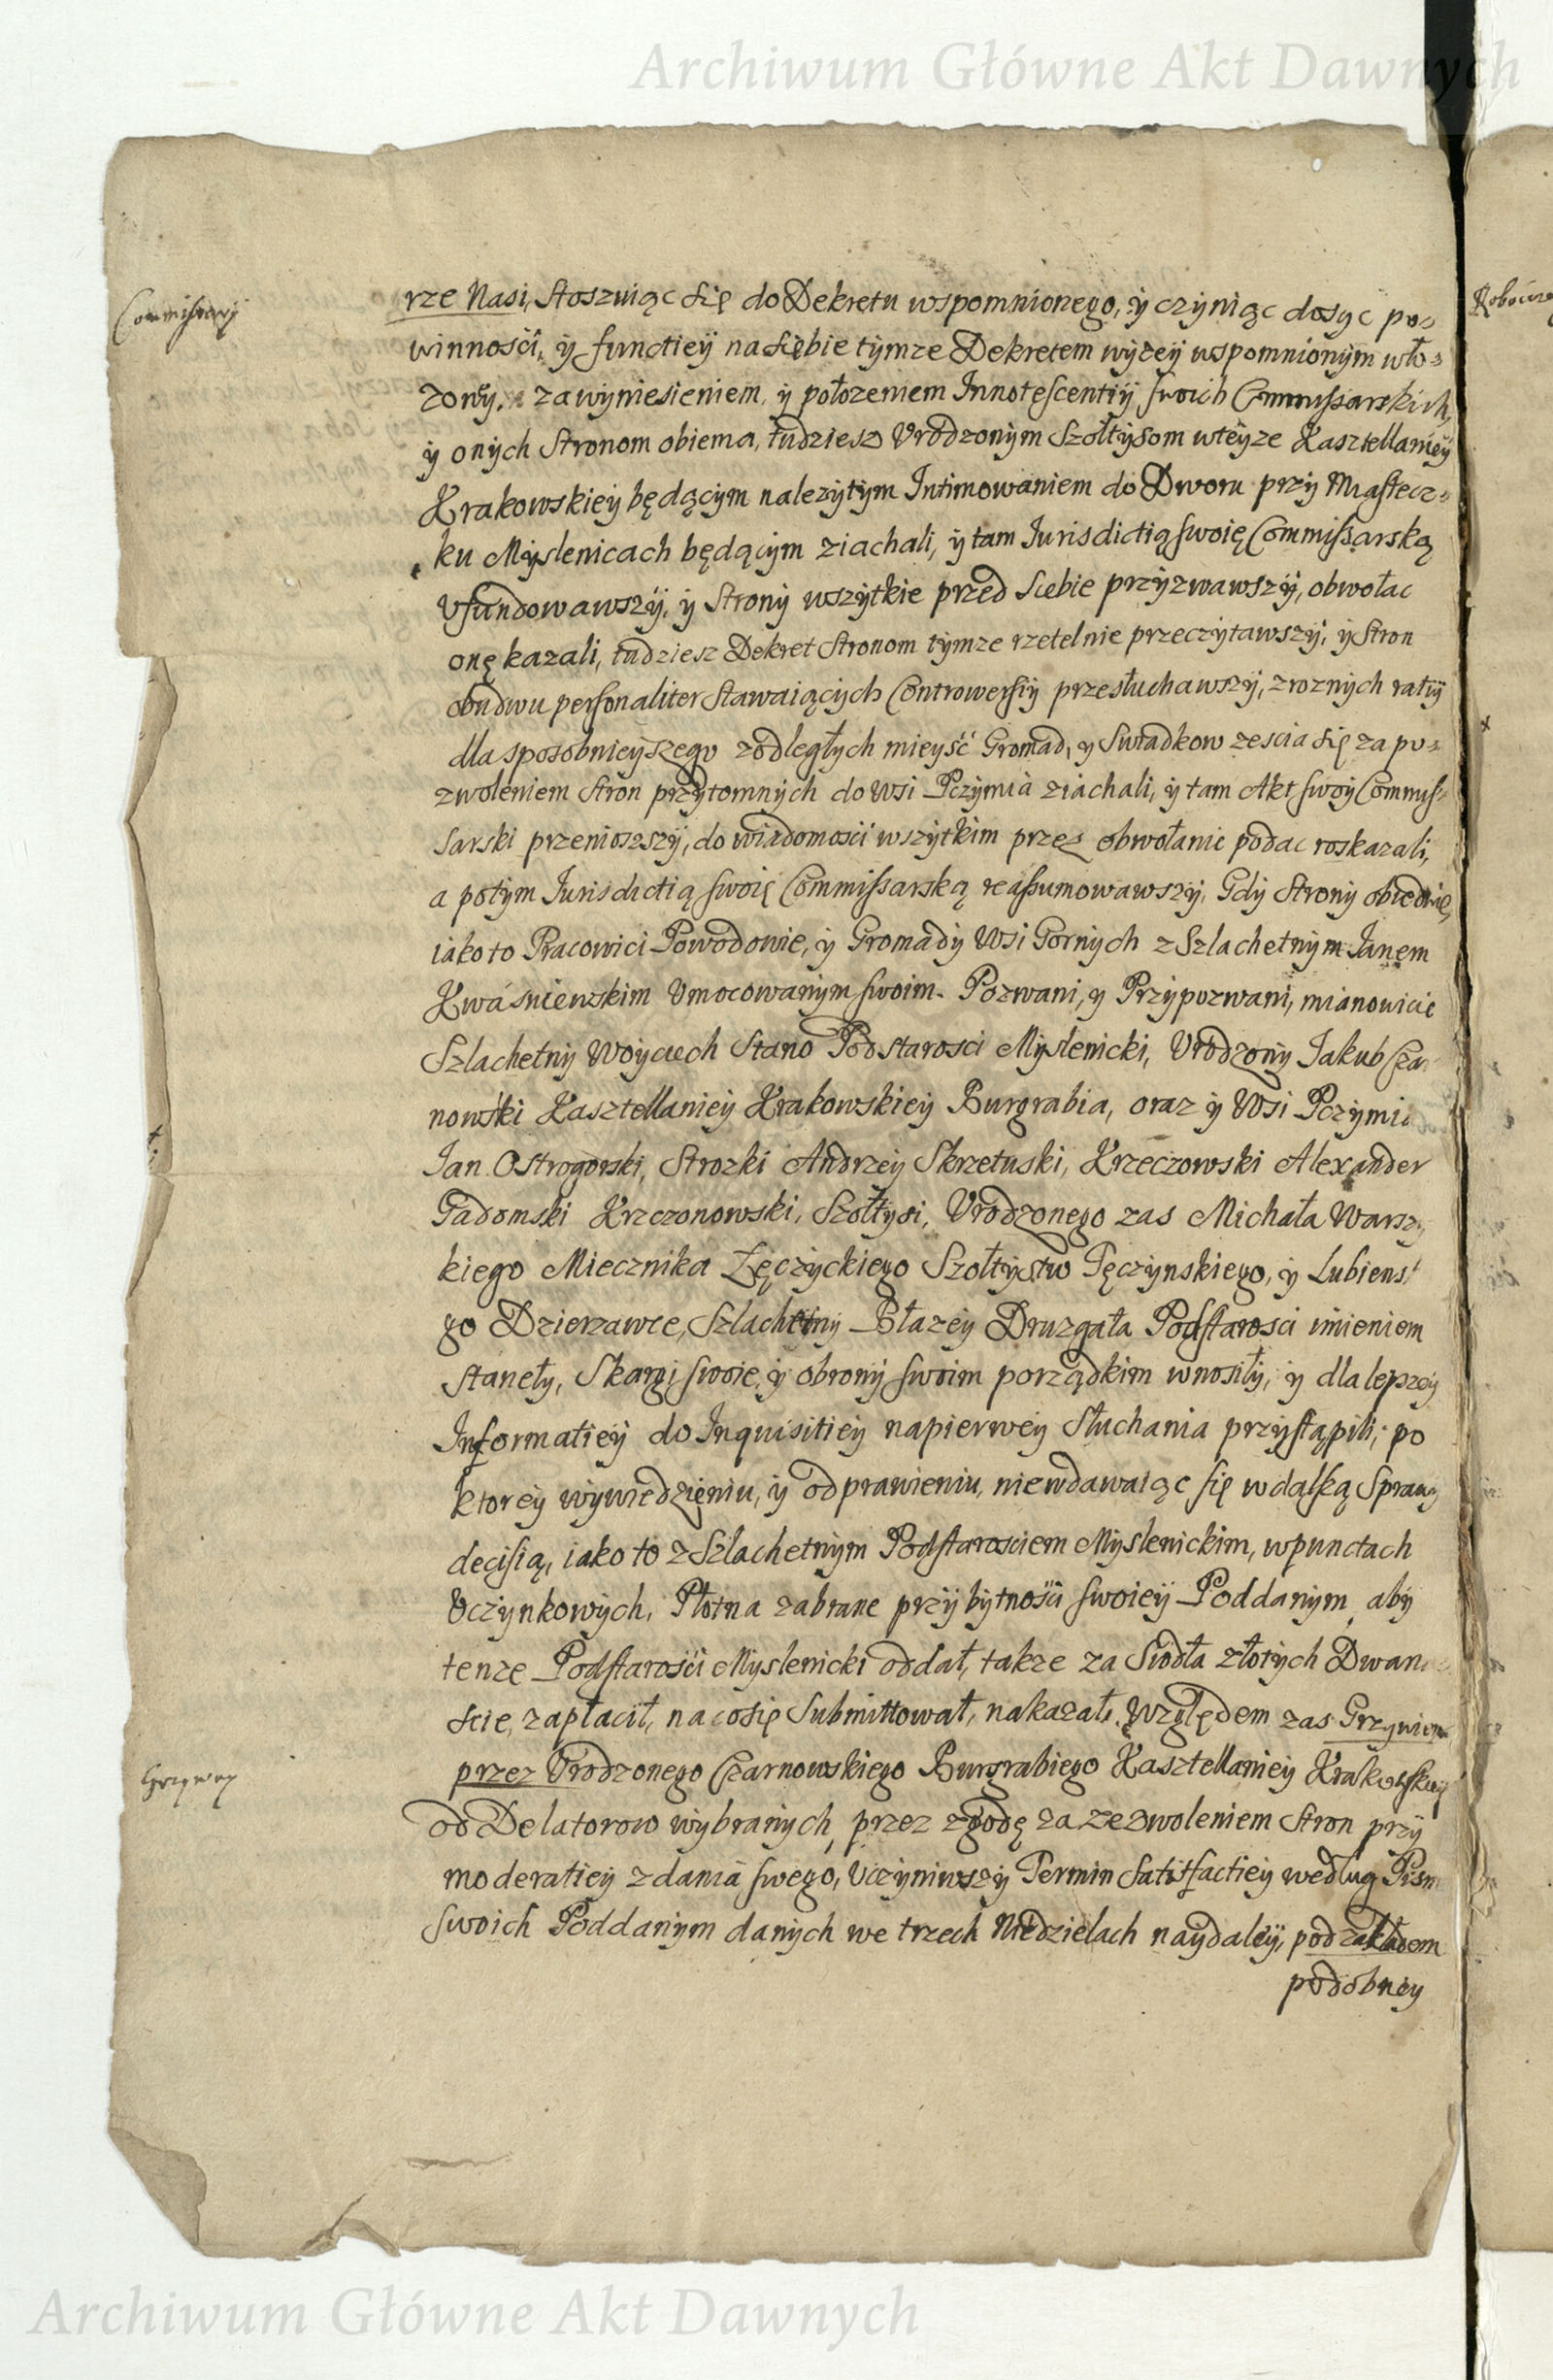 Archiwum Główne Akt Dawnych
Commissarÿ
rze Nasi, stoszuiąc się do Dekretu wspomnionego, ÿ czyniąc dosyc po=
winności, ÿ functiey na siębie tymze Dekretem wyzey wspomnionym wło=
zony, za wyniesieniem, y połozeniem Innotescentiÿ swoich Commissarskich,
ÿ onych Stronom obiema, tudziesz Vrodzonym Szołtysom wteyze Kasztellaniey
Krakowskiey będącym nalezytym Intimowaniem do Dworu przy Miastecz=
ku Myslenicach będącym ziachali, ÿ tam Iurisdictią swoię Commissarską
Vfundowawszy, ÿ Strony wszytkie przed siebie przyzwawszy, obwołac
onę kazali, tudziesz Dekret Stronom tymze rzetelnie przeczytawszy, ÿ Stron
obudwu personaliter stawaiących Controwersiy przesłuchawszy, z roznych ratiÿ
dla sposobnieyszego zodległych mieyść Gromad, y Swiadkow zescia się za po=
zwoleniem stron przytomnych do Wsi Pczymia ziachali, ÿ tam Akt swoy Commis=
sarski przenioszszy, do wiadomosci wszytkim przez obwołanie podac roskazali,
a potym Iurisdictią swoię Commissarską reassumowawszy, Gdy Strony obiedwie,
iako to Pracowici Powodowie, ÿ Gromady Wsi Gornych z Szlachetnym Ianem
Kwásniewskim Vmocowanym swoim. Pozwani, y Przypozwani, mianowicie
Szlachetny Woyciech Stano Podstarosci Myslenicki, Vrodzony Iakub Czar
nowski Kasztellaniey Krakowskiey Burgrabia, oraz ÿ Wsi Pczymia
Ian Ostrogorski, Strozki Andrzey Skrzetuski, Krzeczowski Alexander
Gadomski Krzczonowski, Szołtysi, Vrodzonego zas Michała Warszy
kiego Miecznika Łęczyckiego Szołtystw Tęczynskiego, y Lubiens
go Dzierzawce, Szlachetny Błazey Druzgała Podstarosci imieniem
stanęły, Skargi swoie, ÿ obrony swoim porządkim wnosiły, ÿ dla lepszey
Informatiey do Inquisitiey napierwey słuchania przystąpili, po
ktorey wywiedzięniu, ÿ odprawieniu, niewdawaiąc się w dalszą Sprawy
decisią, iako to z Szlachetnym Podstarosciem Myslenickim, w punctach
Vczynkowych, Płotna zabrane przy bytności swoiey Poddanym, aby
tenze Podstarości Myslenicki oddał, takze za Siodła złotych Dwana
scie, zapłacił, na co się submittował, nakazał. Względem zas Grzywien
Grzywny
przez Vrodzonego Czarnowskiego Burgrabiego Kasztellaniey Krakowskiey
od Delatorow wybranych, przez zgodę za zezwoleniem stron przy
moderatiey zdania swego, Vczyniwszy Termin satisfactiey według Pism
swoich Poddanym danych we trzech Niedzielach naydaley, pod zakładem
podobney
Archiwum Główne Akt Dawnych